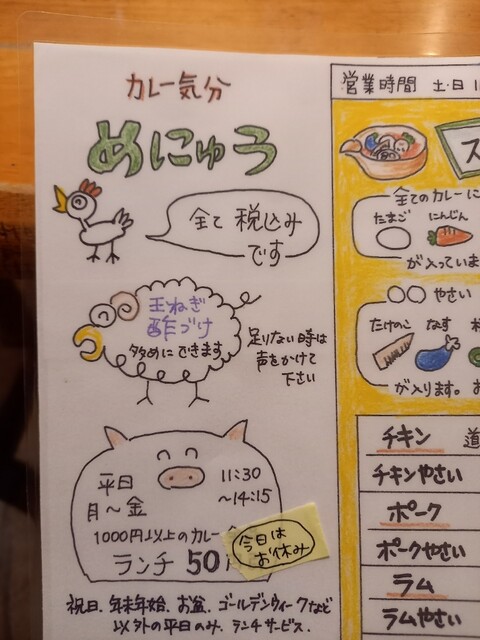 カレー気分
めにゅう
全て 税込み
です
玉ねぎ
酢づけ
多めにできます
足りない時は
声をかけて
下さい
平日
月〜金
11:30
〜14:15
1000円以上のカレー
ランチ 50
今日は
お休み
祝日、年末年始、お盆、ゴールデンウィークなど
以外の平日のみ、ランチサービス.
営業時間 土・日
ス
全てのカレーに
たまご にんじん
が入っていま
○○ やさい
たけのこ なす
が入ります。お
チキン
道
チキンやさい
ポーク
ポークやさい
ラム
ラムやさい